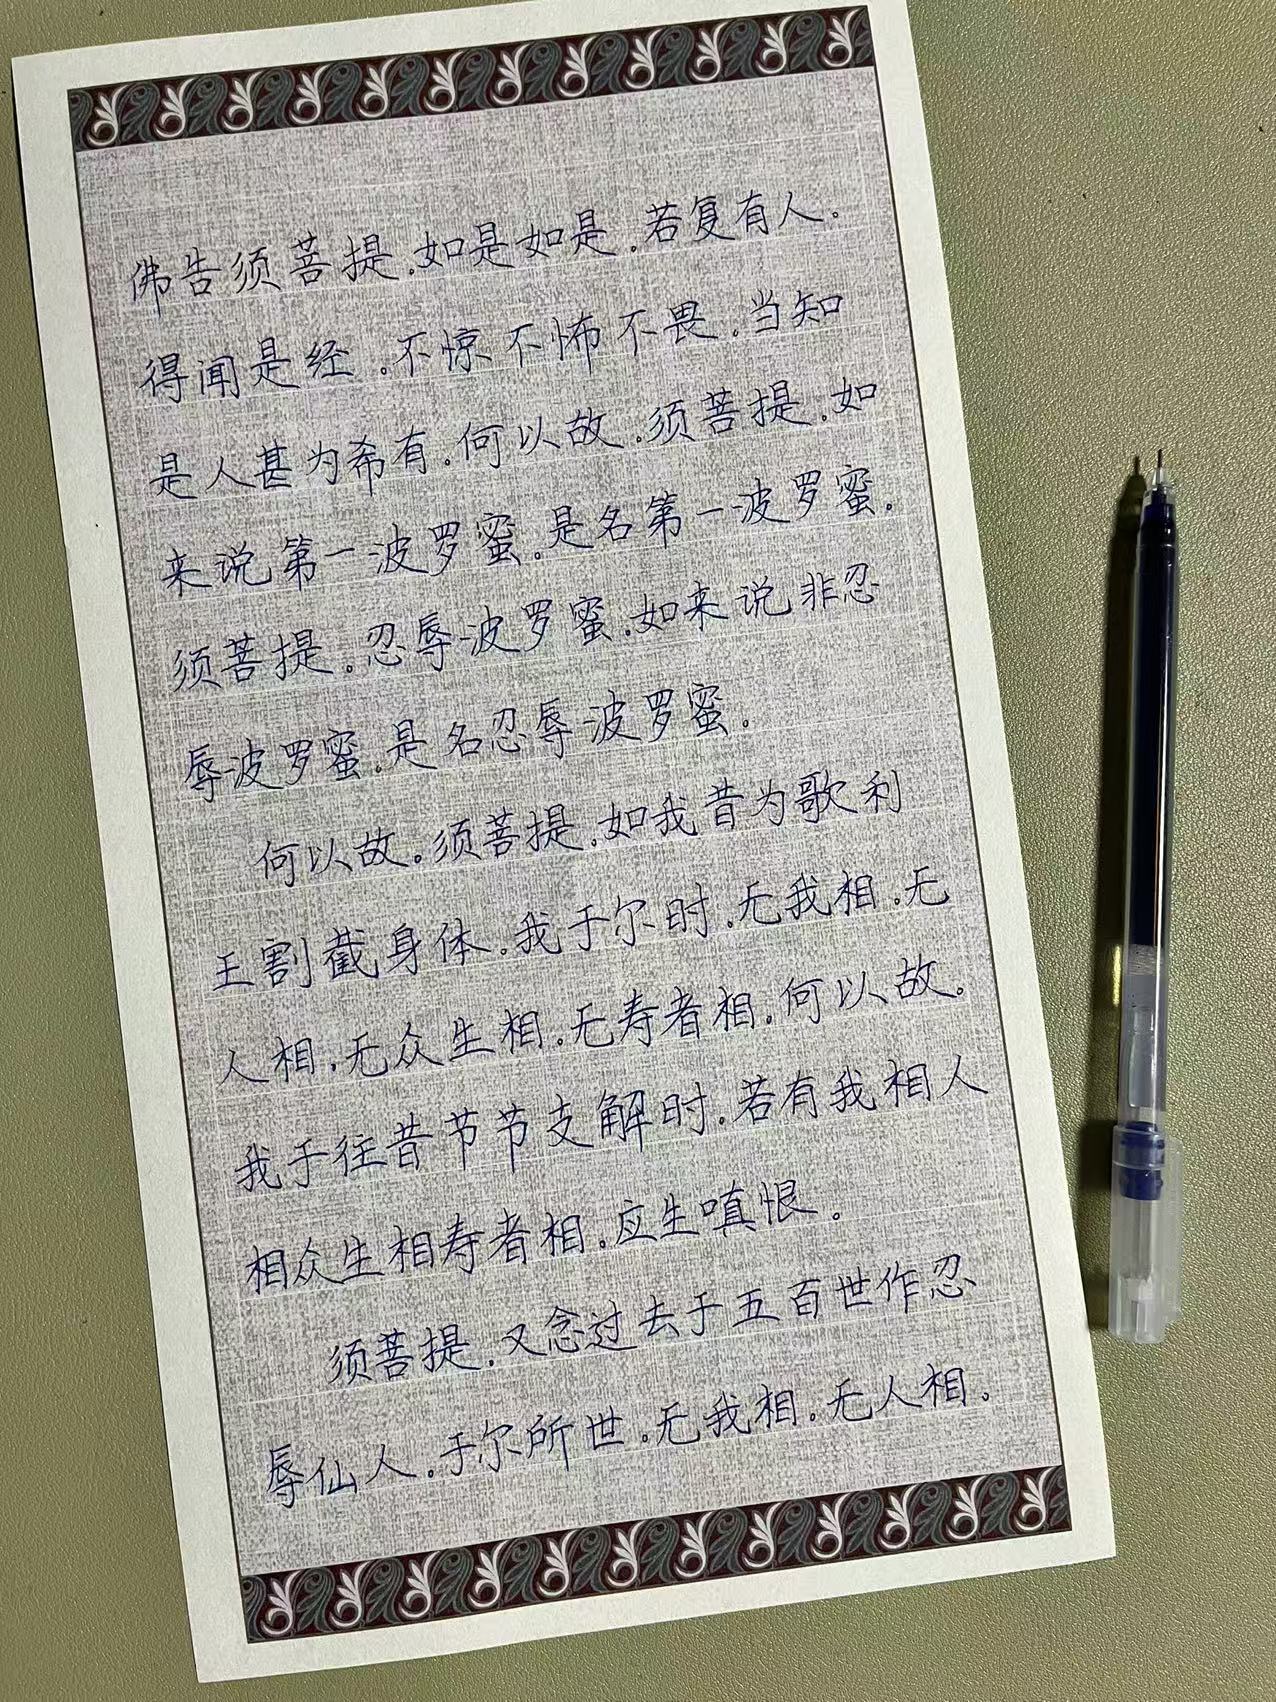 佛告须菩提。如是如是。若复有人。
得闻是经。不惊不怖不畏。当知
是人甚为希有。何以故。须菩提。如
来说第一波罗蜜。是名第一波罗蜜。
须菩提。忍辱波罗蜜。如来说非忍
辱波罗蜜。是名忍辱波罗蜜。
何以故。须菩提。如我昔为歌利
王割截身体。我于尔时。无我相。无
人相。无众生相。无寿者相。何以故。
我于往昔节节支解时。若有我相人
相众生相寿者相。应生嗔恨。
须菩提。又念过去于五百世作忍
辱仙人。于尔所世。无我相。无人相。